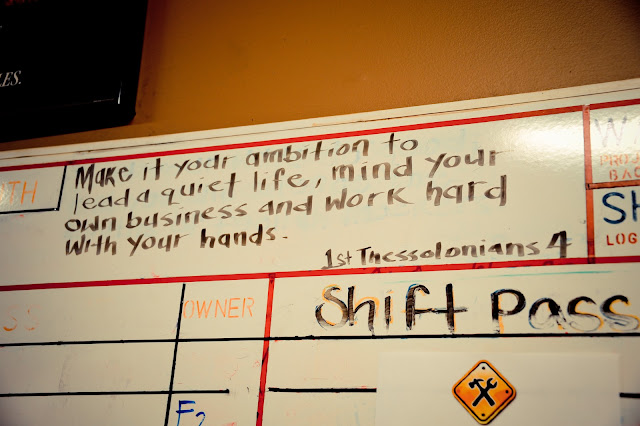 LES.
Make it your ambition to
lead a quiet life, mind your
own business and work hard
with your hands.
1st Thessolonians 4
OTH
W
PRO
BAC
SH
LOG
OWNER
Shift Pass
F2